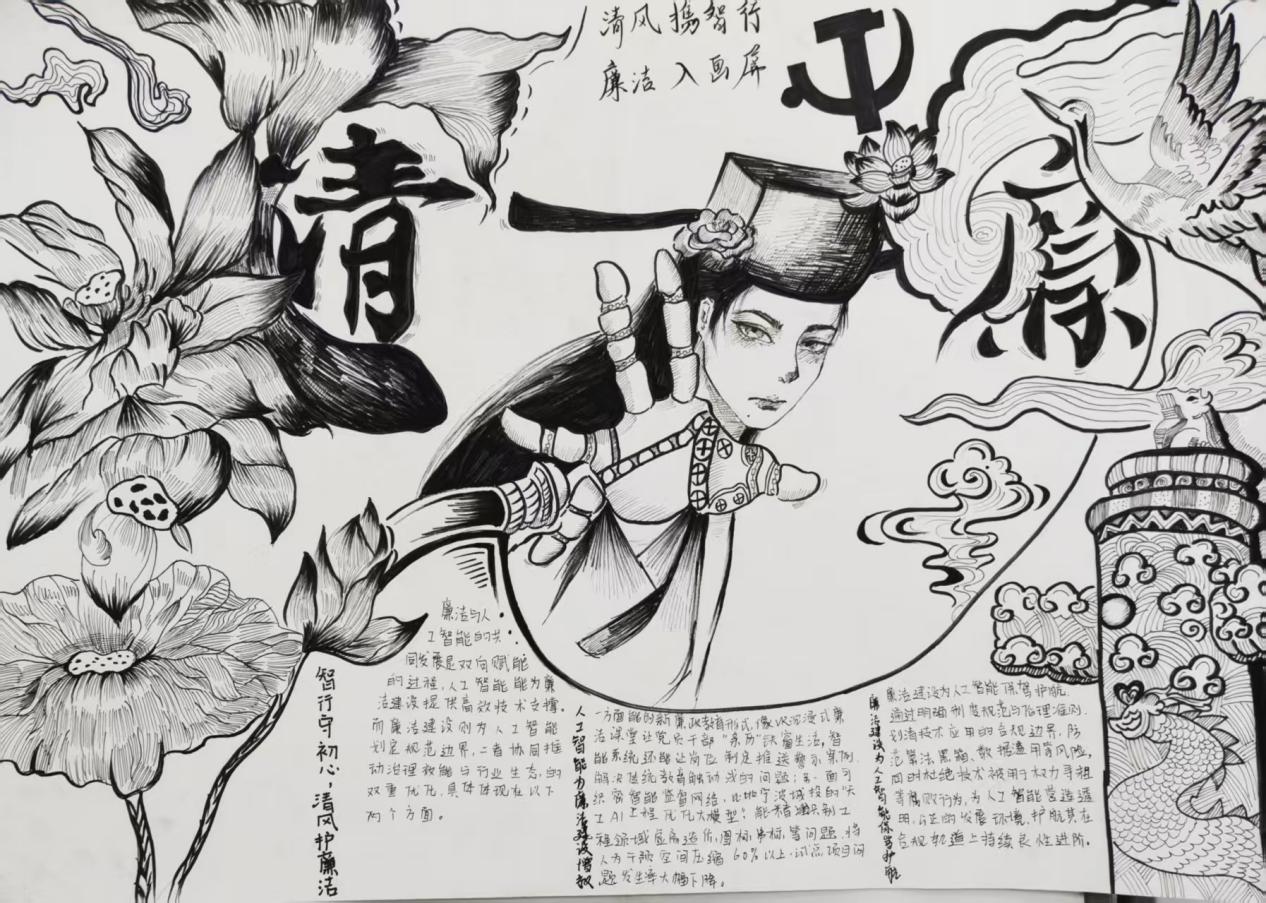 清风携智行
廉洁入画屏
清
廉
智行守初心,清风护廉洁
廉洁与人
工智能的共
同发展是双向赋能
的过程,人工智能能为廉
洁建设提供高效技术支撑。
而廉洁建设则为人工智能
划定规范边界,二者协同推
动治理效能与行业生态的
双重优化,具体体现在以下
两个方面。
人工智能为廉洁建设增效
一方面能创新廉政教育形式,像VR沉浸式廉
洁课堂让党员干部“亲历”铁窗生活,智
能系统还能让岗位制定推送警示案例,
解决传统教育触动浅的问题;另一面可
织密智能监督网络,比如宁波城投的“天
工AI工程优化大模型”能精准识别工
程领域虚高造价,围标串标等问题,将
人为干预空间压缩60%以上,试点项目问
题发生率大幅下降。
廉洁建设为人工智能保驾护航
廉洁建设为人工智能保驾护航,
通过明确制度规范与伦理准则,
划清技术应用的合规边界,防
范算法黑箱、数据滥用等风险,
同时杜绝技术被用于权力寻租
等腐败行为,为人工智能营造透
明,公正的发展环境,护航其在
合规轨道上持续良性进阶。